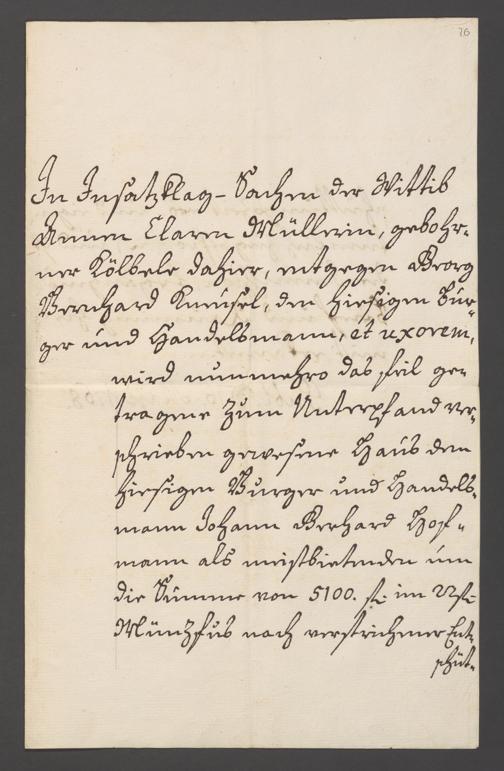 76
In Insatzklag-Sachen der Wittib
Annen Claren Müllerin, gebohr-
ner Kölbele dahier, entgegen Georg
Bernhard Kneusel, den hiesigen Bur-
ger und Handelsmann, et uxorem,
wird nunmehro das feil ge-
tragene zum Unterpfand ver-
schrieben gewesene Haus dem
hiesigen Burger und Handels-
mann Johann Gerhard Hof-
mann als meistbietenden um
die Summe von 5100. fl. im 22 fl.
Münzfus nach verstrichener Ent-
schüt-